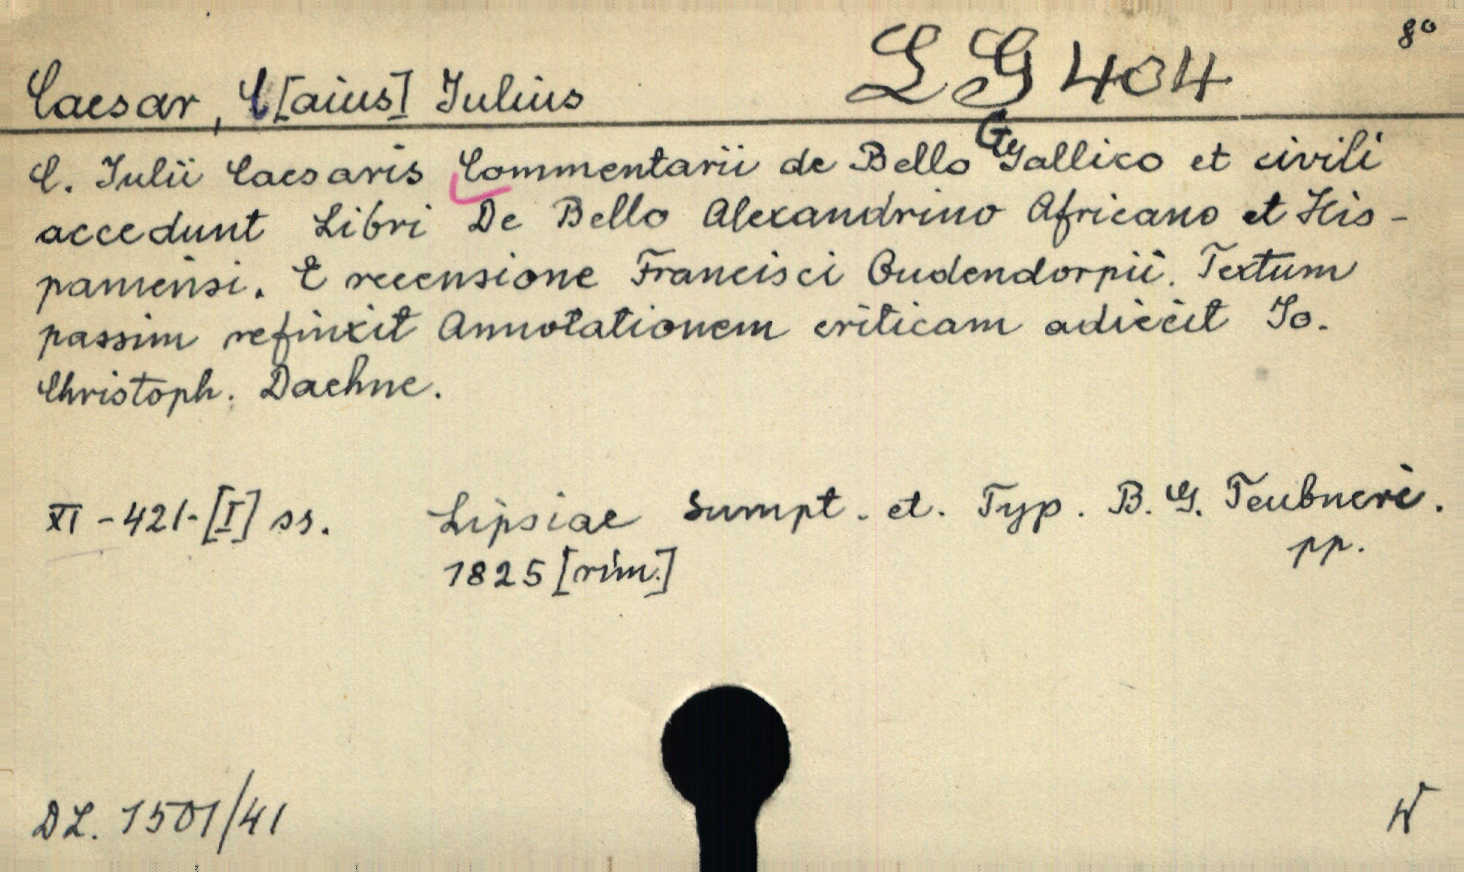 8°
Caesar, C[aius] Iulius LG 404
C. Iulii Caesaris Commentarii de Bello Gallico et civili
accedunt Libri De Bello Alexandrino Africano et His-
paniensi. E recensione Francisci Oudendorpii. Textum
passim refinxit Annotationem criticam adiecit Io.
Christoph. Daehne.
XI-421-[I] ss. Lipsiae Sumpt. et. Typ. B. G. Teubneri.
1825 [rim.] pp.
DL. 1501/41 W